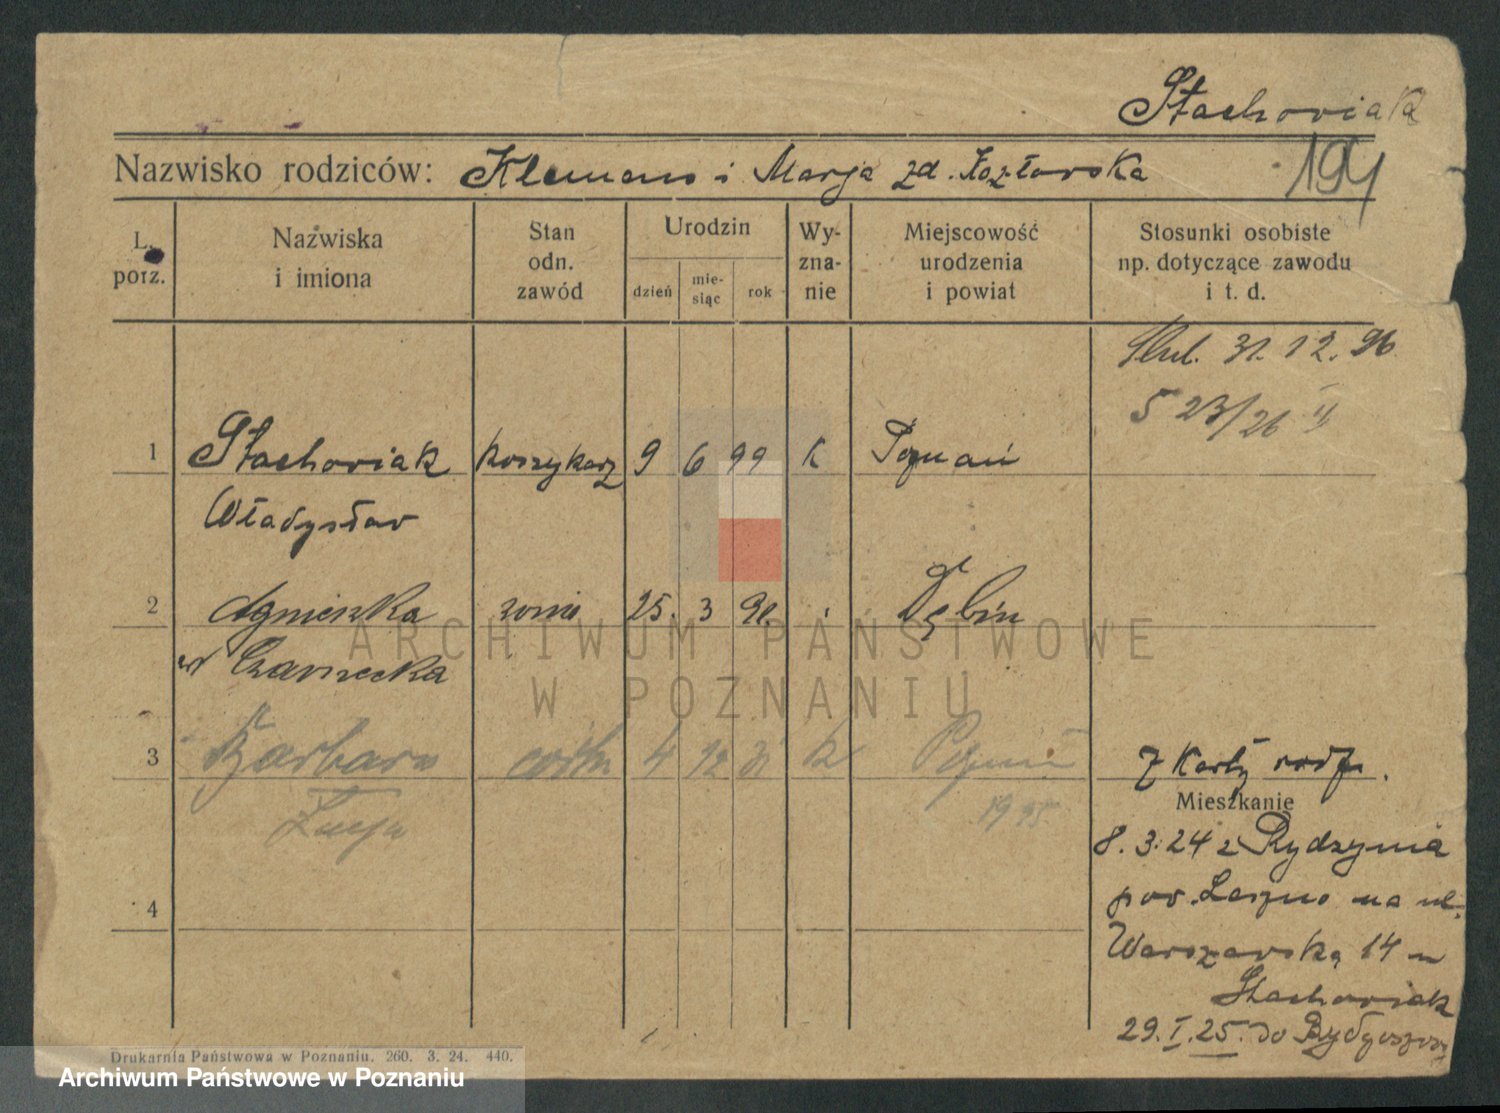 Stachowiak
Nazwisko rodziców: Klemens i Marja zd. Kozłowska 194
L. porz.
Nazwiska i imiona
Stan odn. zawód
Urodzin
dzień
miesiąc
rok
Wyznanie
Miejscowość urodzenia i powiat
Stosunki osobiste np. dotyczące zawodu i t. d.
31. 12. 26
5 23/26 II
1 Stachowiak koszykarz 9 6 99 k Poznań
Władysław
2 Agnieszka żona 25. 3 Dębin
Czarnecka
3 Barbara córka 4 12 31 k Poznań
Łucja
Z Karty rodz.
Mieszkanie
8. 3. 24 z Rydzynia
pow. Leszno na ul.
Warszawską 14 u
Stachowiak
29. I. 25. do Bydgoszczy
4
Drukarnia Państwowa w Poznaniu. 260. 3. 24. 440.
ARCHIWUM PAŃSTWOWE
W POZNANIU
Archiwum Państwowe w Poznaniu